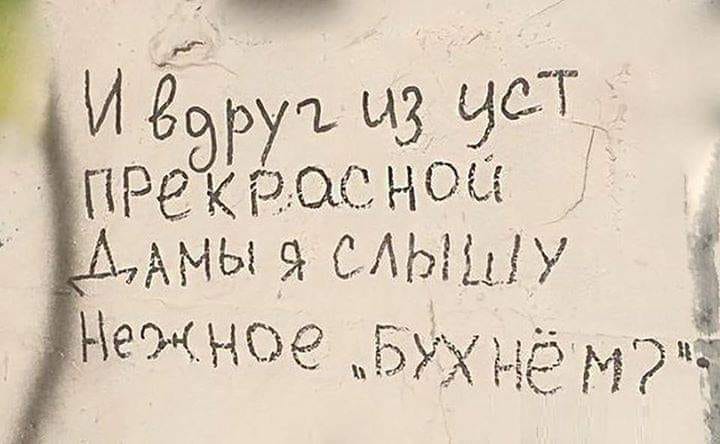 И вдруг из уст
прекрасной
Дамы я слышу
Нежное „Бухнём?"